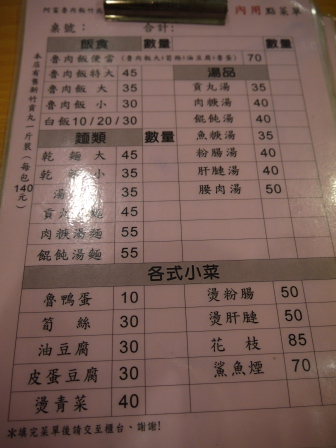 阿富魯肉飯竹
內用 點菜單
桌號： 合計：
飯食 數量 數量
魯肉飯便當（魯肉飯大+筍絲+油豆腐+魯蛋） 70
魯肉飯特大 45
魯肉飯 大 35
魯肉飯 小 30
白飯10/20/30
湯品
貢丸湯 35
肉羹湯 40
餛飩湯 40
魚羹湯 35
粉腸湯 40
肝腱湯 40
腰肉湯 50
麵類 數量
乾麵大 45
乾麵小 35
湯 35
貢丸 麵 45
肉羹湯麵 55
餛飩湯麵 55
各式小菜
魯鴨蛋 10
筍絲 30
油豆腐 30
皮蛋豆腐 30
燙青菜 40
燙粉腸 50
燙肝腱 50
花枝 85
鯊魚煙 70
本店有售新竹貢丸一斤裝（每包140元）
※填完菜單後請交至櫃台、謝謝!